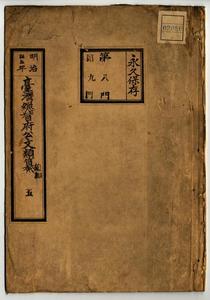 永久保存
第八門
第九門
明治
臺灣總督府公文類纂
五